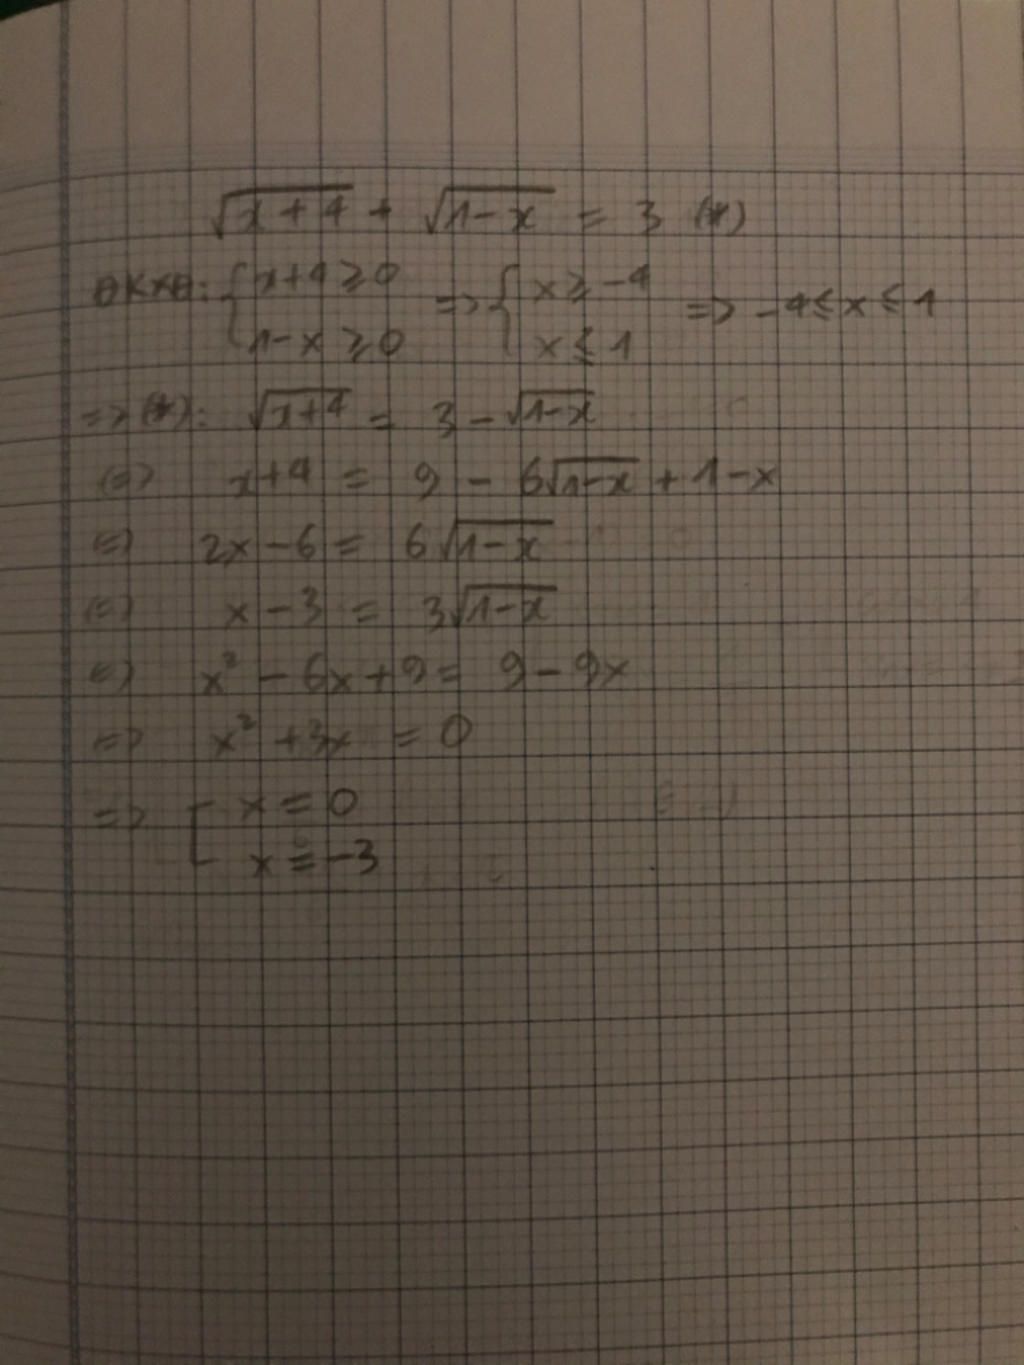 √(x+4) + √(1-x) = 3 (*)
ĐKXĐ: { x+4 ≥ 0 => { x ≥ -4 => -4 ≤ x ≤ 1
1-x ≥ 0 x ≤ 1
=> (*): √(x+4) = 3 - √(1-x)
(=) x+4 = 9 - 6√(1-x) + 1-x
=) 2x - 6 = 6√(1-x)
(=) x - 3 = 3√(1-x)
(=) x² - 6x + 9 = 9 - 9x
=> x² + 3x = 0
=> [ x = 0
x = -3